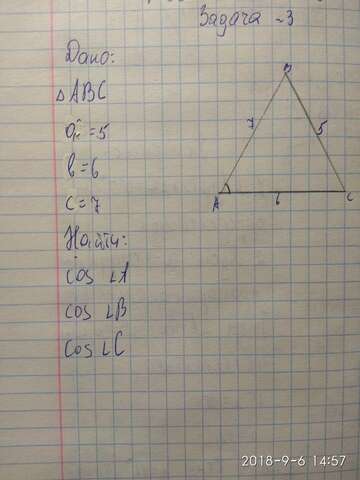 Задача -3
Дано:
△ABC
a=5
b=6
c=7
Найти:
cos ∠A
cos ∠B
cos ∠C
B
7
5
A
6
C
2018-9-6 14:57